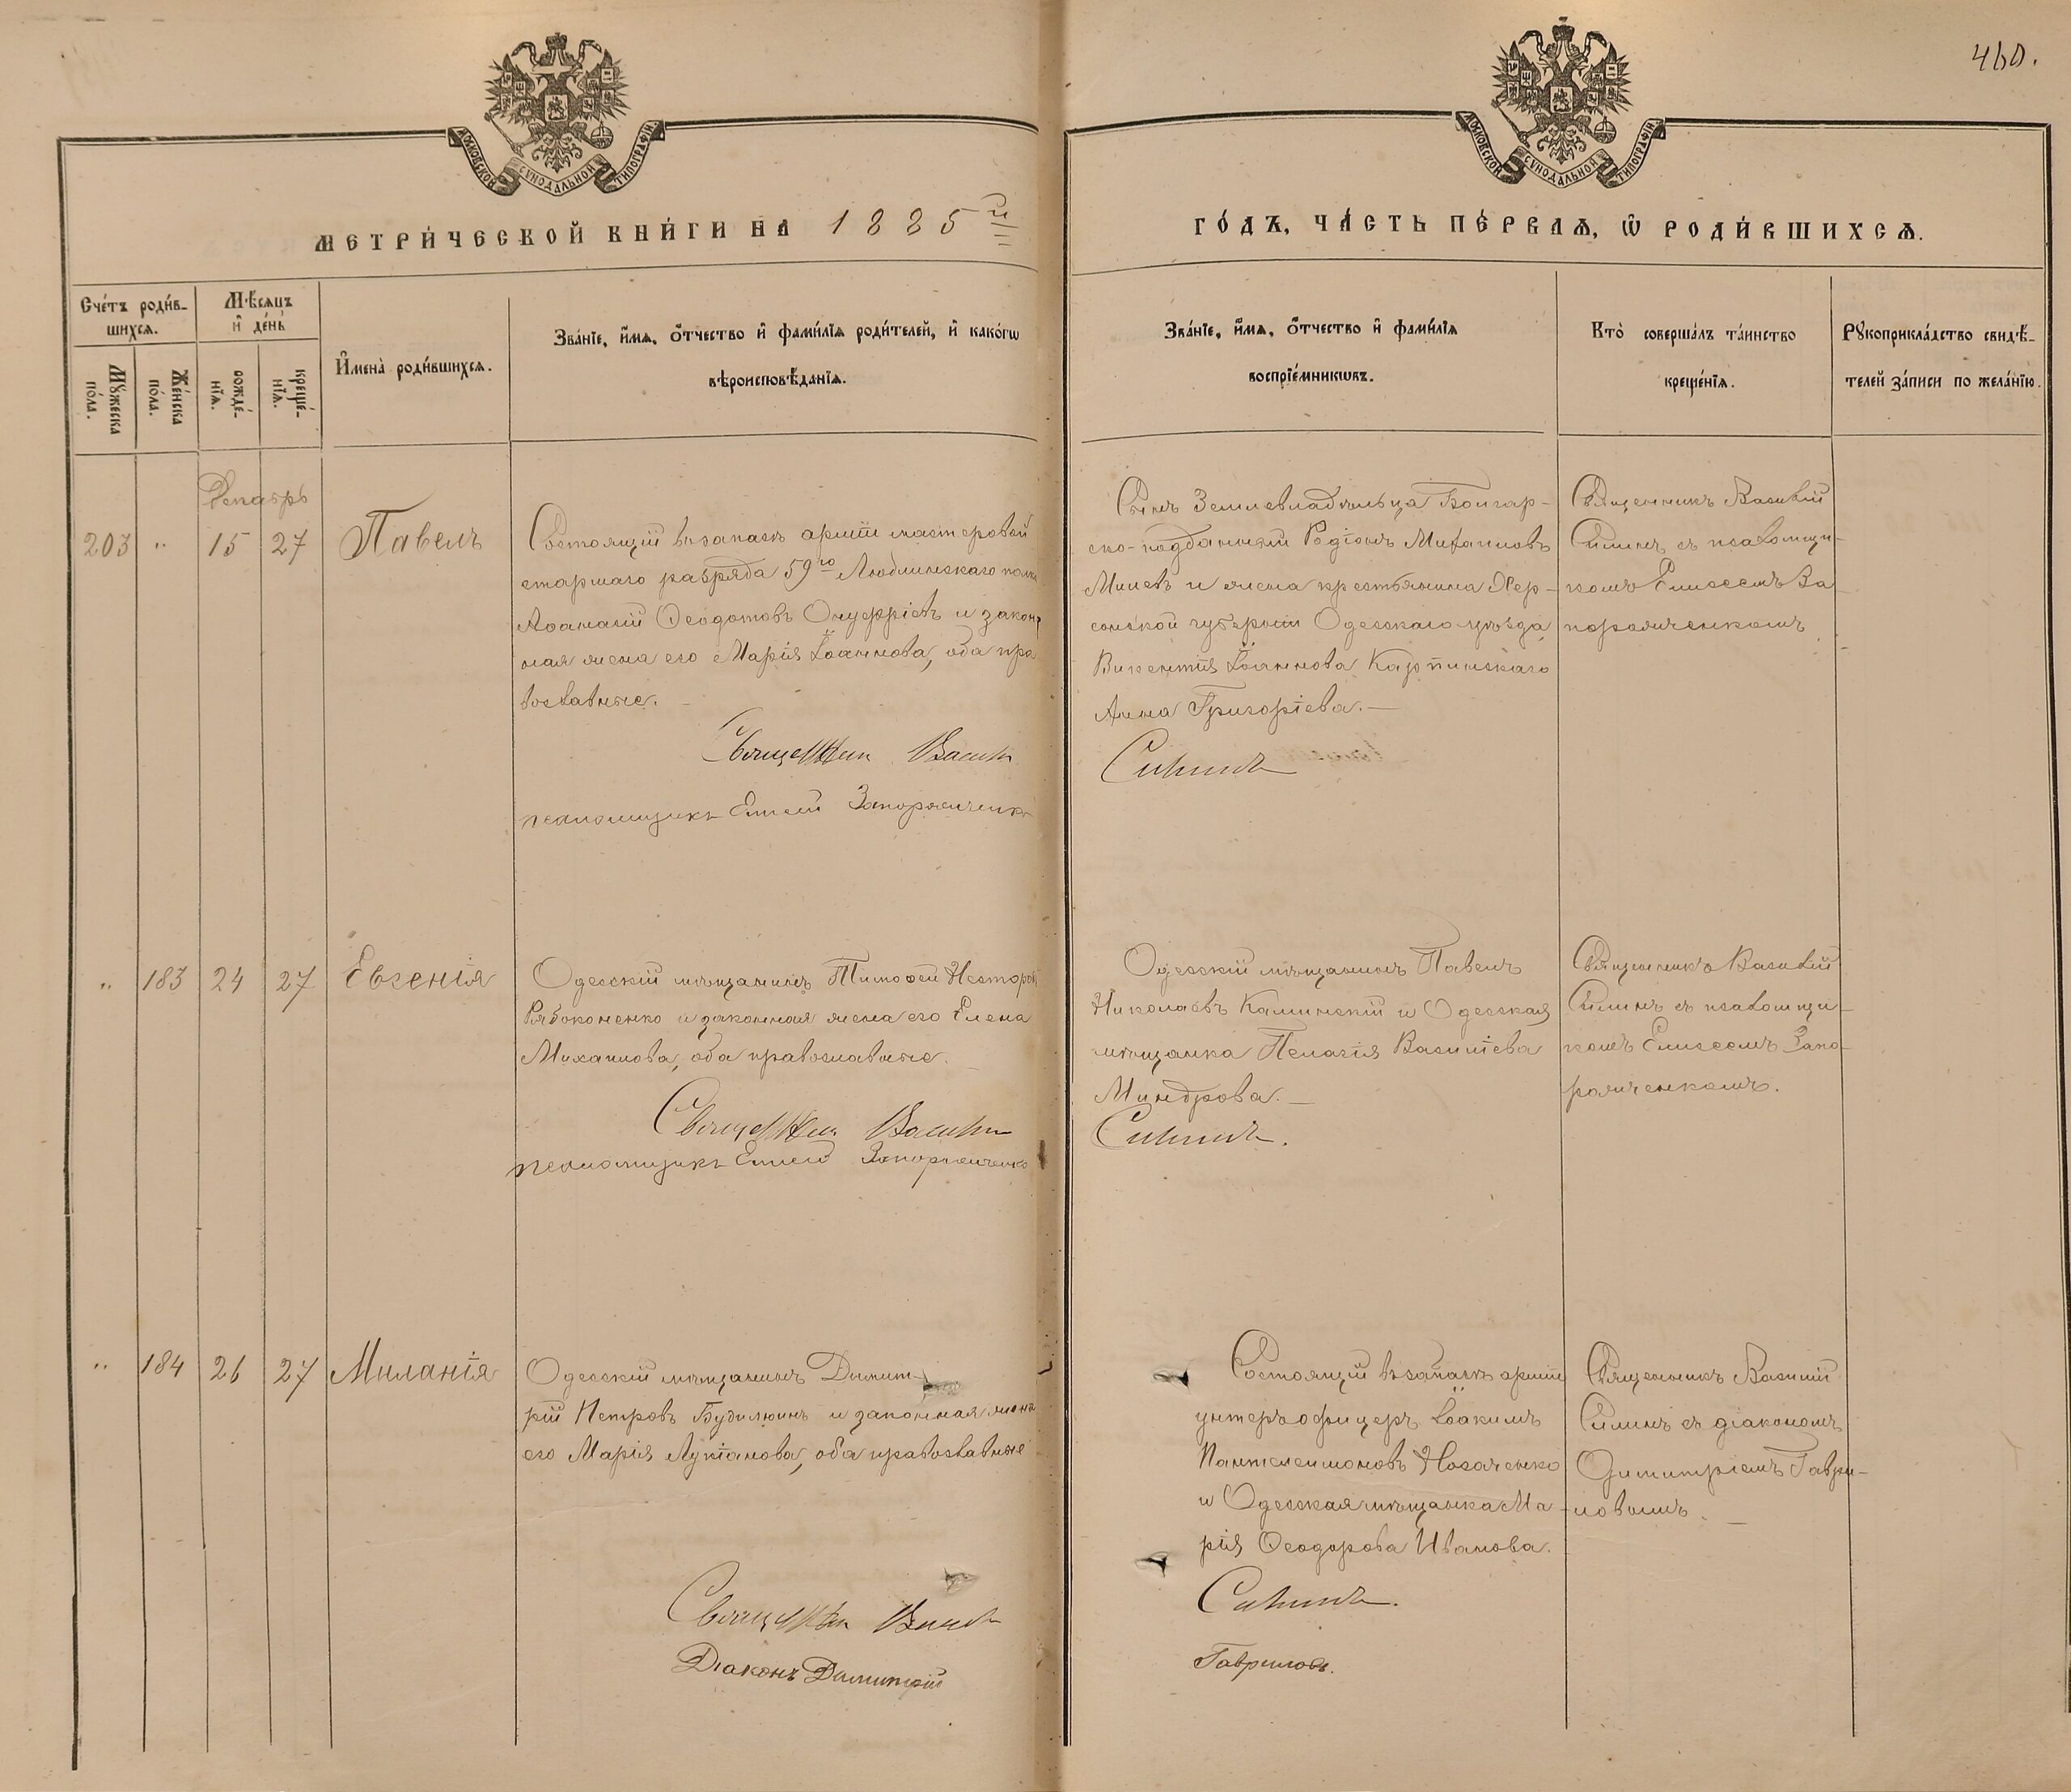 460.
МОСКОВСКОЙ СѴНОДАЛЬНОЙ ТИПОГРАФІИ
МОСКОВСКОЙ СѴНОДАЛЬНОЙ ТИПОГРАФІИ
МЕТРИ́ЧЕСКОЙ КНИ́ГИ НА 1885й
ГО́ДЪ, ЧА́СТЬ ПЕ́РВАѦ, Ѽ РОДИ́ВШИХСѦ.
Сче́тъ роди́в-
шихсѧ.
Мꙋ́жеска
по́ла.
Же́нска
по́ла.
Мѣ́сѧцъ
и҆ де́нь
рожде́-
нїѧ.
креще́-
нїѧ.
И҆мена̀ роди́вшихсѧ.
Зва́нїе, и҆́мѧ, ѻ҆́тчество и҆ фами́лїѧ роди́телей, и҆ како́гѡ
вѣроисповѣ́данїѧ.
Зва́нїе, и҆́мѧ, ѻ҆́тчество и҆ фами́лїѧ
воспрїе́мникѡвъ.
Кто̀ соверша́лъ та́инство
креще́нїѧ.
Рꙋкоприкла́дство свидѣ́-
телей за́писи по жела́нїю.
Декабрь
203 " 15 27 Павелъ
Состоящій въ запасѣ арміи мастеровой
старшаго разряда 59го Люблинскаго полка
Аѳанасій Ѳеодотовъ Онуфріевъ и закон
ная жена его Марія Іоаннова, оба пра
вославные.
Священник Васили
псаломщикъ Елисей Запорожченко
Сынъ Землевладѣльца Болгар-
ско-подданный Родіонъ Михаиловъ
Миневъ и жена крестьянина Хер-
сонской губерніи Одесскаго уѣзда
Викентія Іоаннова Карпинскаго
Анна Григоріева.—
Силинъ
Священникъ Василій
Силинъ съ псаломщи-
комъ Елисеемъ За
порожченкомъ
" 183 24 27 Евгенія
Одесскій мѣщанинъ Тимоѳей Нестор
Рябоконенко и законная жена его Елена
Михаилова, оба православные.
Священник Васили
псаломщикъ Елисей Запорожченко
Одесскій мѣщанинъ Павелъ
Николаевъ Калинскій и Одесская
мѣщанка Пелагія Василіева
Миндрова.—
Силинъ.
Священникъ Василій
Силинъ съ псаломщи-
комъ Елисеемъ Запо-
рожченкомъ.
" 184 26 27 Миланія
Одесскій мѣщанинъ Димит-
рій Петровъ Будилюинъ и законная жена
его Марія Лукіанова, оба православные
Священник Васили
Діаконъ Димитрій
Состоящій въ запасѣ арміи
унтеръ офицеръ Іоакимъ
Пантелеимоновъ Носаченко
и Одесская мѣщанка Ма-
рія Ѳеодорова Иванова.
Силинъ.
Гавриловъ.
Священникъ Василій
Силинъ съ діакономъ
Димитріемъ Гаври-
ловымъ.—